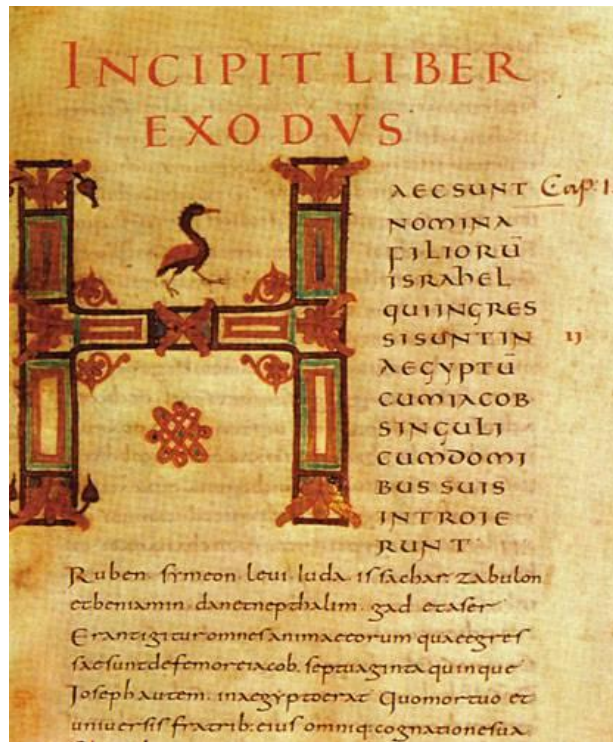 INCIPIT LIBER
EXODVS
H
AEC SUNT Cap: I.
NOMINA
FILIORŪ
ISRAhEL
QUI INGRES
SI SUNT IN II
AEGYPTŪ
CUM IACOB
SINGULI
CUM DOMI
BUS SUIS
INTROIE
RUNT
Ruben. symeon. leui. Iuda. issachar. zabulon
et beniamin. dan et nepthalim. gad et aser
Erant igitur omnes animae eorum quae egres
sae sunt de femore iacob. septuaginta quinque
Ioseph autem. in aegypto erat Quo mortuo et
uniuersis fratrib: eius omniq: cognatione sua